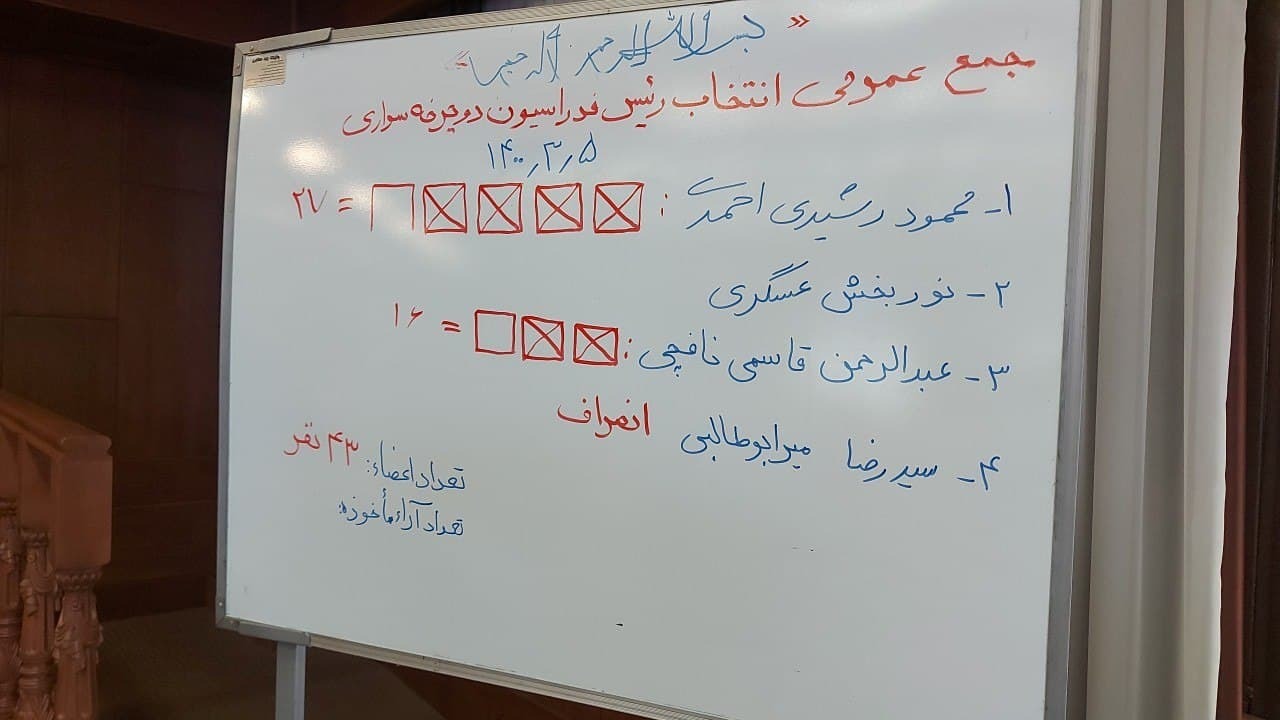 « بسم الله الرحمن الرحیم »
مجمع عمومی انتخاب رئیس فدراسیون دوچرخه سواری
۱۴۰۰٫۳٫۵
۱- محمود رشیدی احمدی : = ۲۷
۲- نوربخش عسگری
۳- عبدالرحمن قاسمی نافچی : = ۱۶
۴- سیدرضا میرابوطالبی انصراف
تعداد اعضاء: ۴۳ نفر
تعداد آراء مأخوذه: